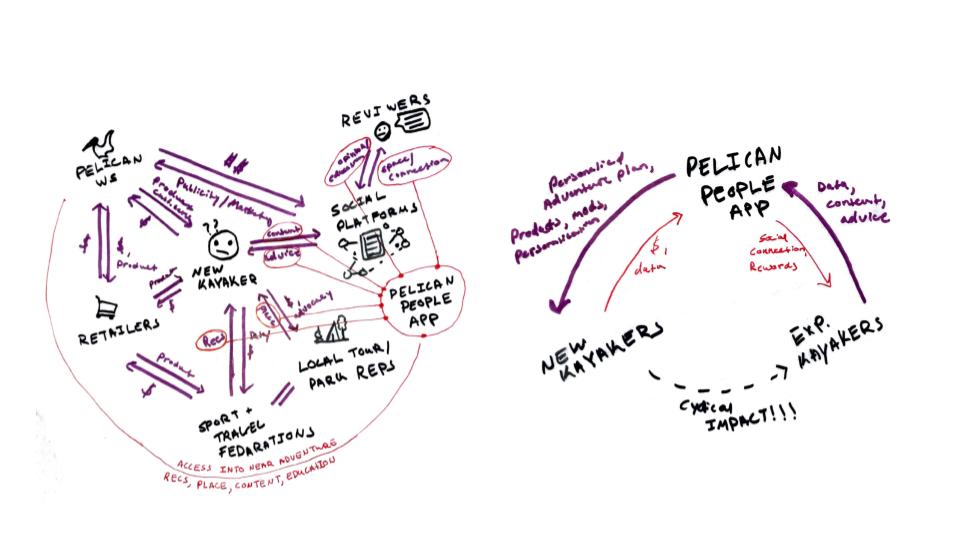 REVIEWERS
opinion/
education
space/
connection
PELICAN
WS
$$
Publicity/Marketing
Product
$
SOCIAL
PLATFORMS
??
content
advice
NEW
KAYAKER
$
$,
Product
Product
$
RETAILERS
PELICAN
PEOPLE
APP
$,
advocacy
Place
Recs
Data/
$
LOCAL TOUR/
PARK REPS
Product
$
SPORT +
TRAVEL
FEDARATIONS
ACCESS INTO NEAR ADVENTURE
RECS, PLACE, CONTENT, EDUCATION
PELICAN
PEOPLE
APP
Personalized
Adventure plan,
Products, mods,
Personalization
$,
data
Social
connection,
Rewards
Data,
content,
advice
NEW
KAYAKERS
EXP.
KAYAKERS
Cyclical
IMPACT!!!